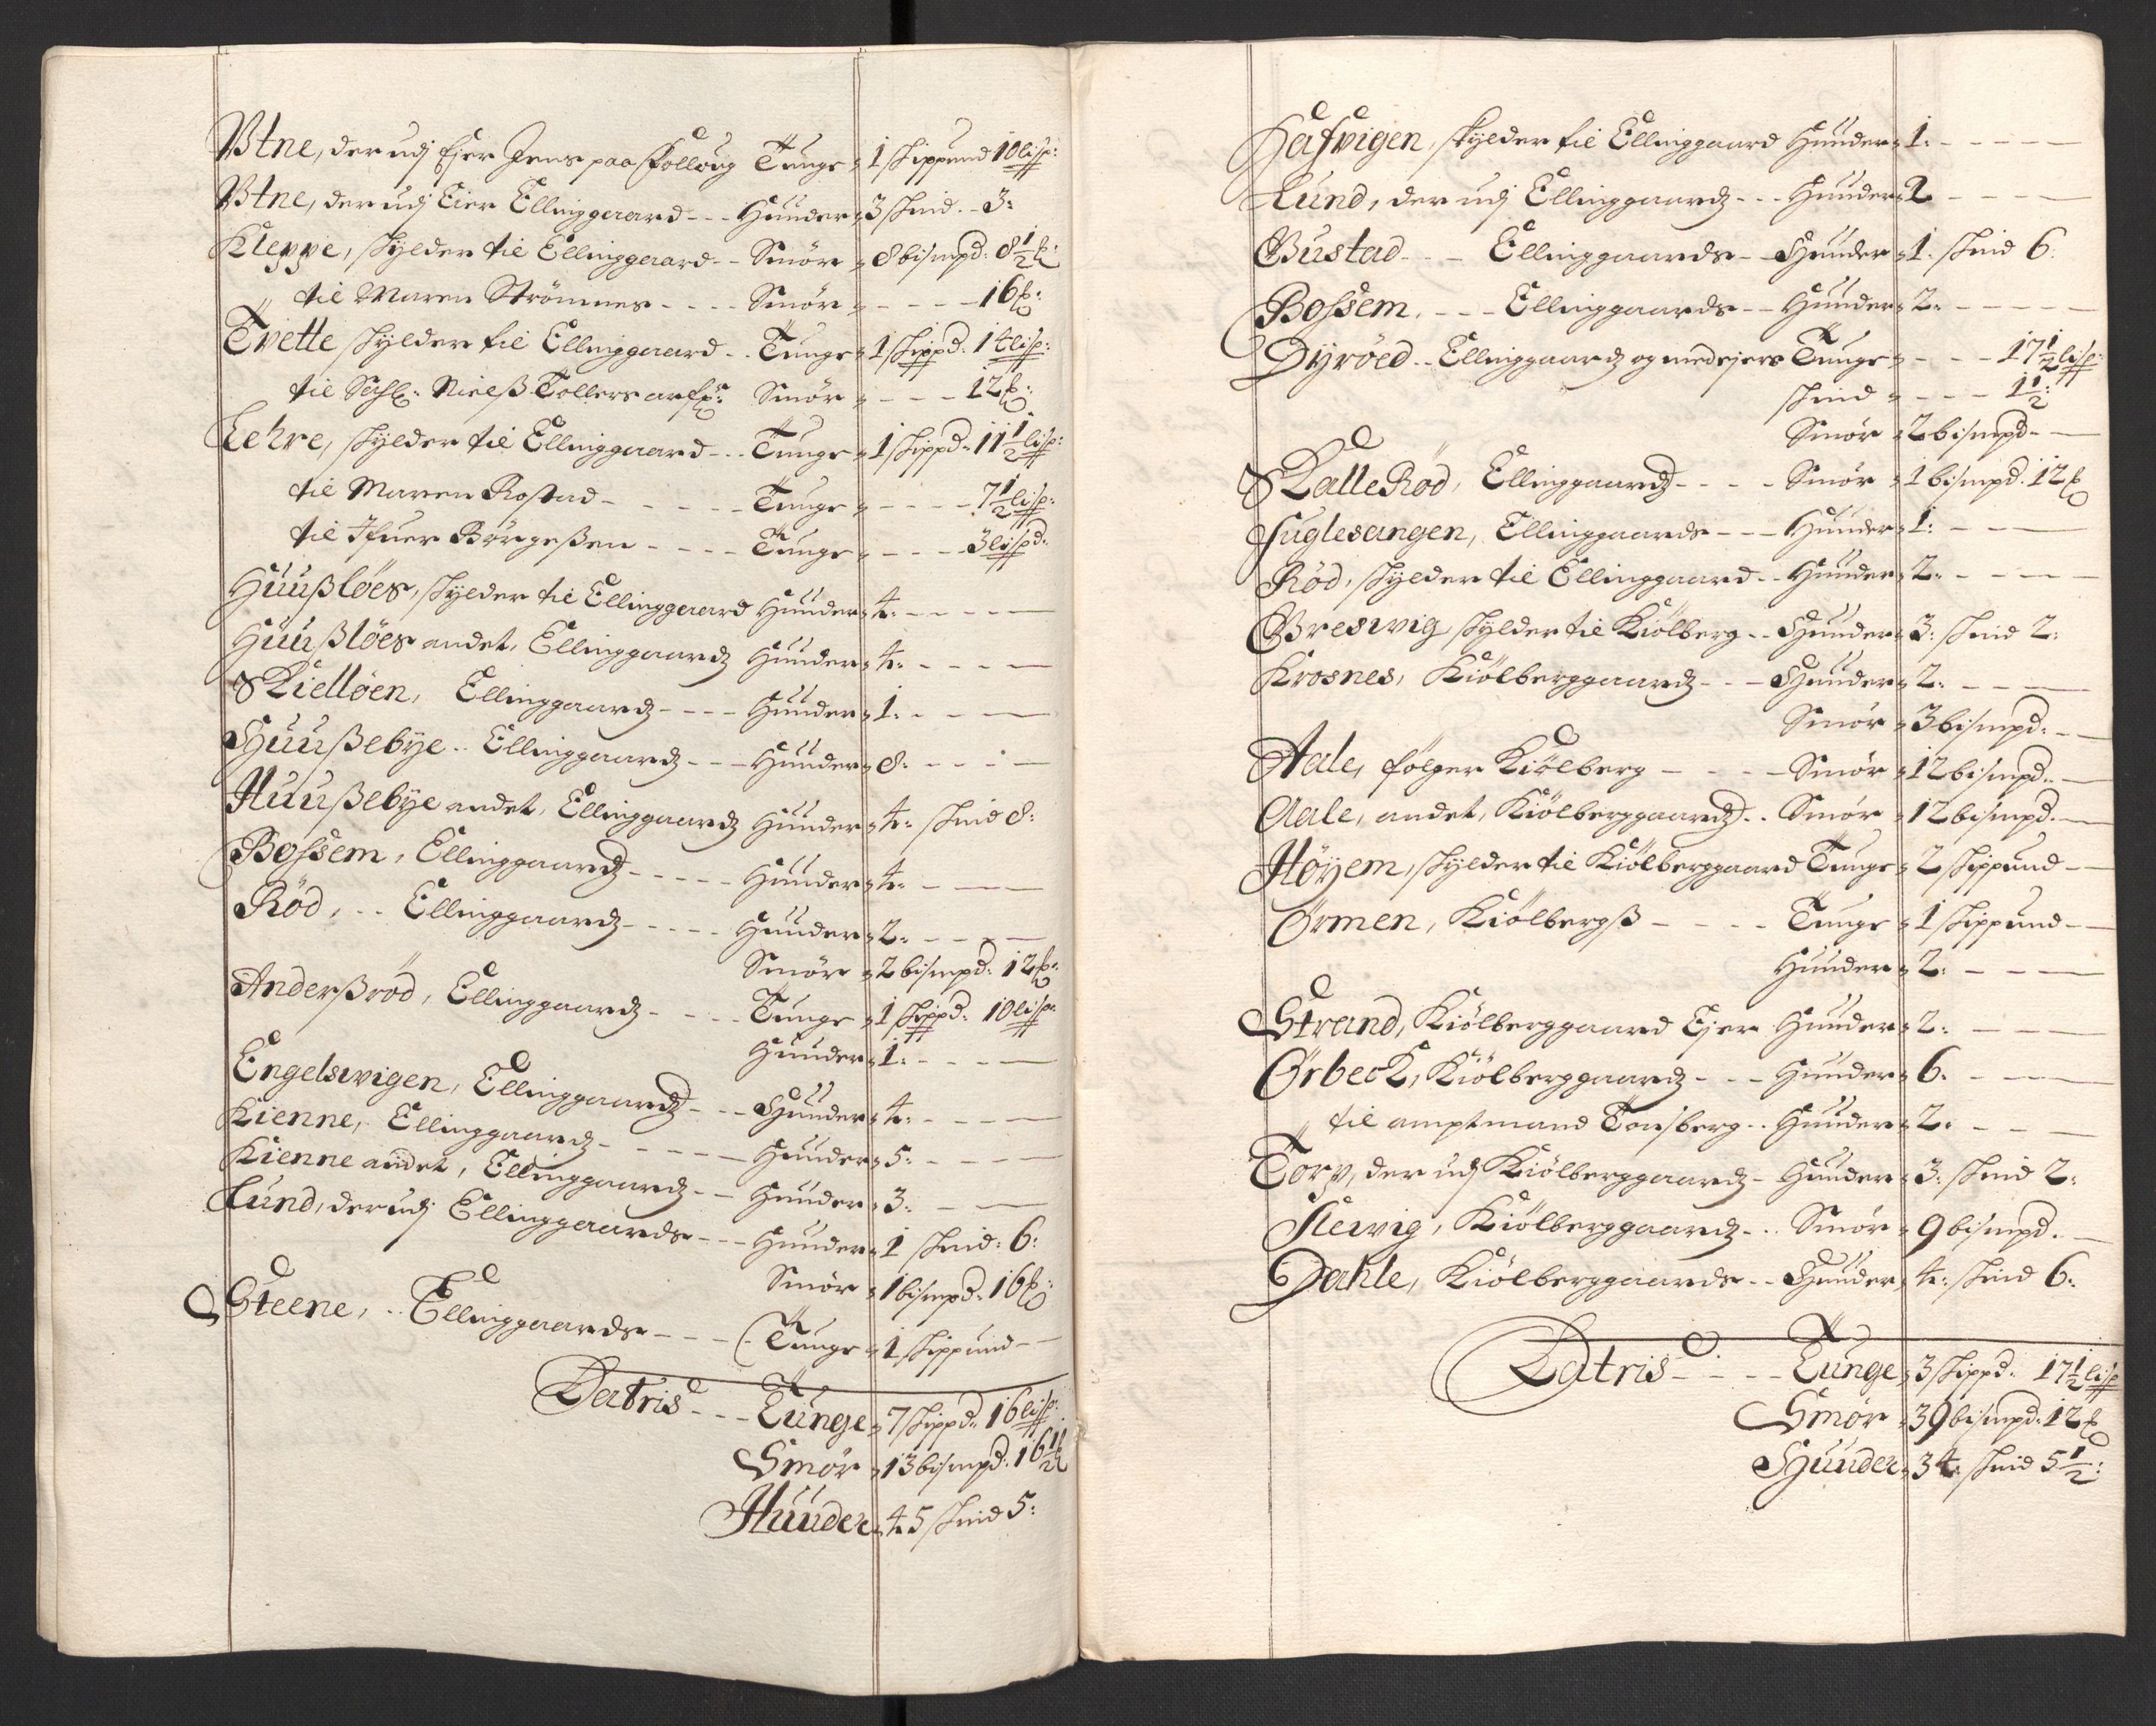 Vtne, der udj Ejer Jens paa Folloug Tunge 1 skippund 10 lisp:
Vtne, der udj Eier Ellinggaard - - Huuder 3 skind. - 3:
Kleppe, skylder til Ellinggaard - - Smör 8 bismpd: 8½ ℔:
til Maren Strömnes - - - - Smör - - - - 16 ℔:
Tvette skylder til Ellinggaard - - Tunge 1 skippd: 14 lisp:
til Sahl: Nielß Tollers arf: Smör - - - 12 ℔:
Lehre, skylder til Ellinggaard - - Tunge 1 skippd: 11½ lisp:
til Maren Rostad - - - - - Tunge - - - - 7½ lisp:
til Ifuer Börgeßen - - - - Tunge - - - - 3 lispd:
Huußlöes, skylder til Ellinggaard Huuder 4: - - - -
Huußlöes andet, Ellinggaards Huuder 4: - - - -
Skiellöen, Ellinggaards - - - - Huuder 1: - - -
Huußebye - - Ellinggaards - - - Huuder 8: - - - -
Huußebye andet, Ellinggaards Huuder 4: skind 8:
Bossem, Ellinggaards - - - - - Huuder 4: - - -
Röd, - - Ellinggaards - - - - - Huuder 2: - - - -
Smör 2 bismpd: 12 ℔:
Anderßröd, Ellinggaards - - - - Tunge 1 skippd: 10 lisp:
Huuder 1: - - - -
Engelswigen, Ellinggaards - - Huuder 4: - - - -
Kienne, Ellinggaards - - - - - Huuder 5: - - - -
Kienne andet, Ellinggaards - - Huuder 3: - - -
Lund, der udj Ellinggaards - - - Huuder 1 skind: 6:
Smör 1 bismpd: 16 ℔:
Steene, - - Ellinggaards - - - Tunge 1 skippund - -
Latris - - - Tunge 7 skippd: 16 lisp:
Smör 13 bismpd: 16½ ℔
Huuder 45 skind 5:
Hafwigen, skylder til Ellinggaard Huuder 1: - - - - -
Lund, der udj Ellinggaards - - - Huuder 2 - - - -
Bustad - - - Ellinggaards - - Huuder 1: skind 6:
Bossem, - - - Ellinggaards - - Huuder 2: - - - - -
Dyröed - - Ellinggaards og medejers Tunge - - - 17½ lisp:
skind - - - - 1½:
Smör 2 bismpd - -
Skalleröd, Ellinggaards - - - - Smör 1 bismpd: 12 ℔
Fuglesangen, Ellinggaards - - - Huuder 1: - - -
Röd, skylder til Ellinggaard - - Huuder 2: - - - - -
Breswig skylder til Kiölberg - - Huuder 3: skind 2:
Krosnes, Kiölberggaards - - - Huuder 2: - - - -
Smör 3 bismpd: - -
Aale, fölger Kiölberg - - - - Smör 12 bismpd: -
Aale, andet, Kiölberggaards - - Smör 12 bismpd: -
Höyem, skylder til Kiölberggaard Tunge 2 skippund - -
Örmen, Kiölbergß - - - - Tunge 1 skippund - -
Huuder 2: - - - -
Strand, Kiölberggaard Ejer Huuder 2: - - - -
Örbeck, Kiölberggaards - - - Huuder 6: - - - -
til amptmand Tonsberg - - Huuder 2: - - -
Torp, der udj Kiölberggaards - Huuder 3: skind 2:
Slewig, Kiölberggaards - - Smör 9 bismpd. -
Dahle, Kiölberggaards - - Huuder 4: skind 6:
Latris - - - - Tunge 3 skippd: 17½ lisp
Smör 39 bismpd: 12 ℔
Huuder 34: skind 5½: